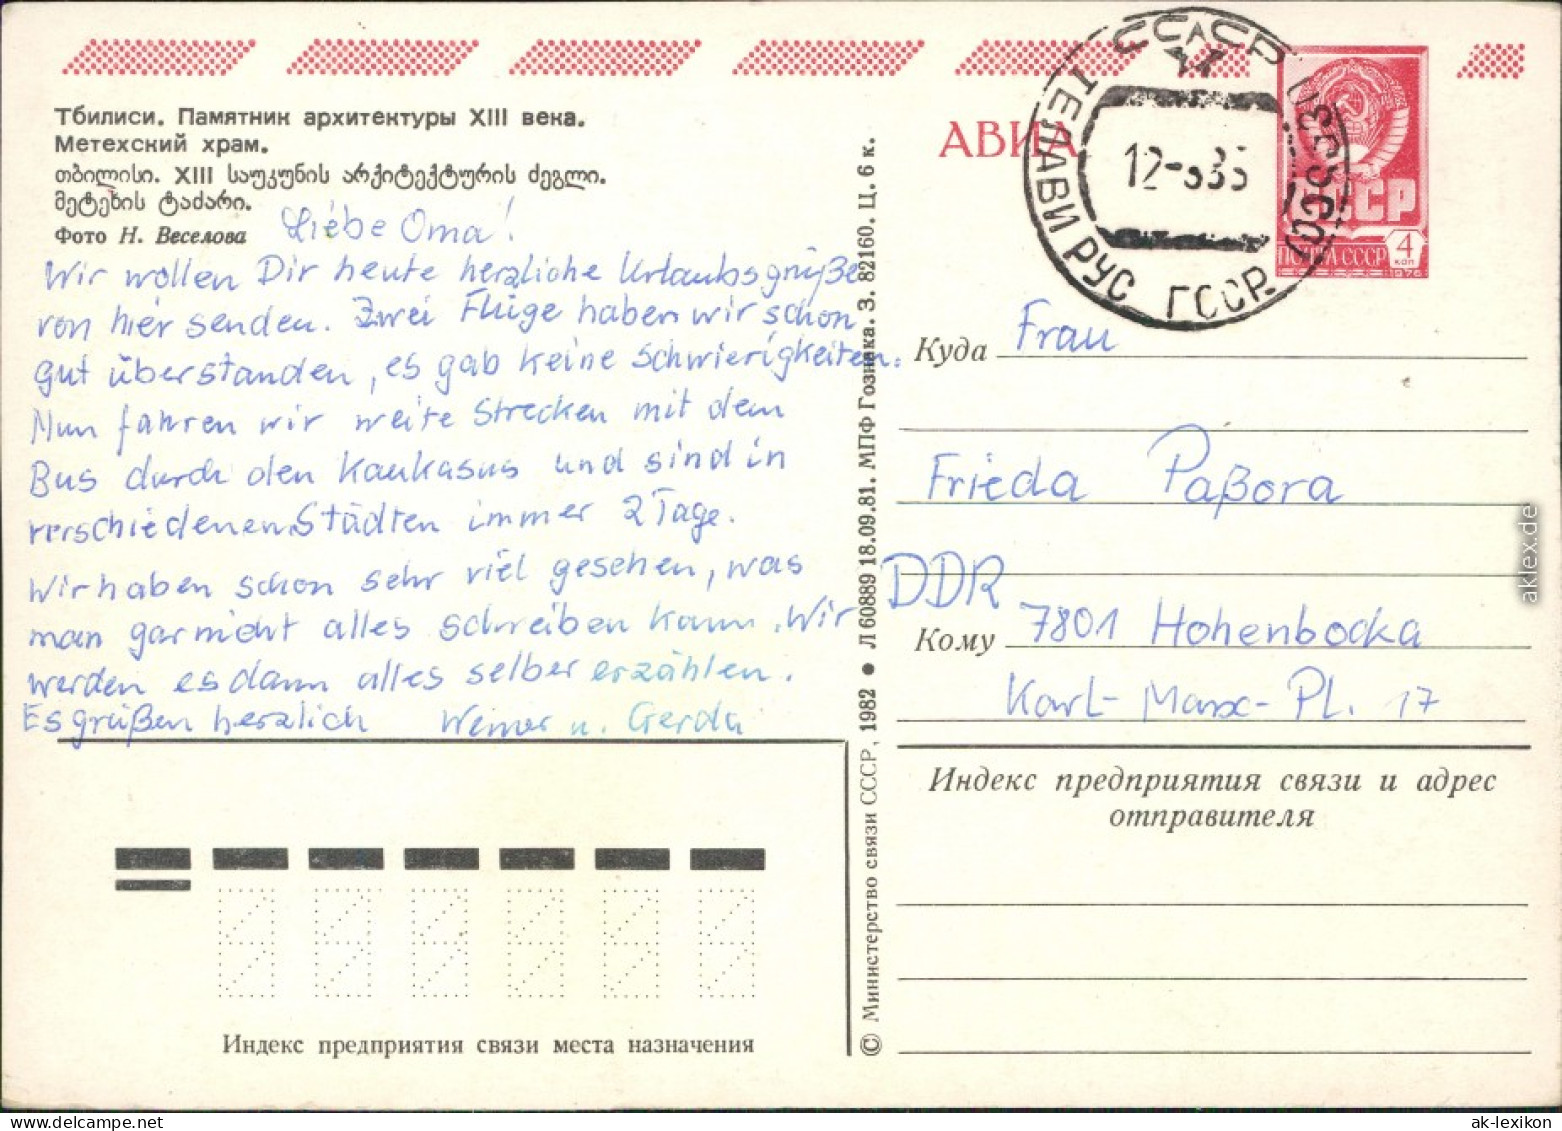 Тбилиси. Памятник архитектуры XIII века.
Метехский храм.
თბილისი. XIII საუკუნის არქიტექტურის ძეგლი.
მეტეხის ტაძარი.
Фото Н. Веселова
Liebe Oma!
Wir wollen Dir heute herzliche Urlaubsgrüße
von hier senden. Zwei Flüge haben wir schon
gut überstanden, es gab keine Schwierigkeiten.
Nun fahren wir weite Strecken mit dem
Bus durch den Kaukasus und sind in
verschiedenen Städten immer 2 Tage.
Wir haben schon sehr viel gesehen, was
man garnicht alles schreiben kann. Wir
werden es dann alles selber erzählen.
Es grüßen herzlich Werner u. Gerda
Индекс предприятия связи места назначения
© Министерство связи СССР, 1982 ● Л 60889 18.09.81. МПФ Гознака. З. 82160. Ц. 6 к.
АВИА
СССР
ТЕЛАВИ РУС ГССР
ПОЧТА СССР
4
КОП
1976
СССР
Куда Frau
Frieda Paßora
DDR
Кому 7801 Hohenbocka
Karl-Marx-Pl. 17
Индекс предприятия связи и адрес
отправителя
aklex.de
ak-lexikon